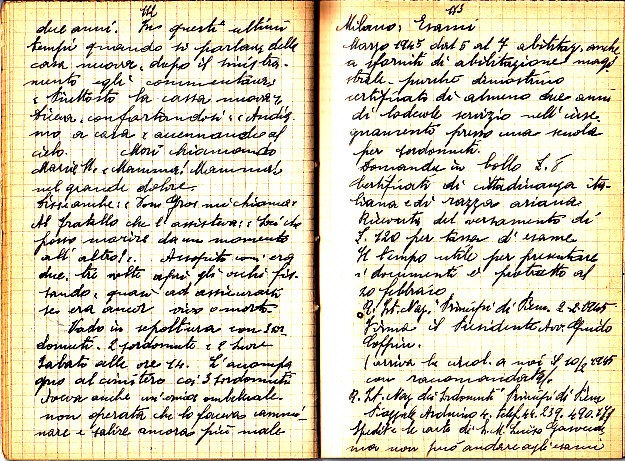 112
due anni. In questi ultimi
tempi quando si parlava della
casa nuova, dopo il sinistra-
mento egli commentava
: Piuttosto la cassa nuova,
Diceva, confortandosi: : Andia-
mo a casa : accennando al
cielo. Morì chiamando
Maria SS. : Mamma! Mamma!
nel grande dolore.
Disse anche: : Don Gros mi chiama:
Al fratello che l'assisteva: : Può che
posso morire da un momento
all'altro!. Assopito com'era
due, tre volte aprì gli occhi fis-
sando, quasi ad assicurarsi
se era ancor vivo o morto.
Vado in sepoltura con sor-
domuti. 2 sordomute e 2 suore
Sabato alle ore 14. L'accompa
gno al cimitero coi 3 sordomuti
Aveva anche un'ernia ombelicale
non operata che lo faceva cammi-
nare e salire ancora più male
113
Milano: Esami
Marzo 1945 dal 5 al 7 abilitaz. anche
a sforniti di abilitazione magi
strale, purché dimostrino
certificato di almeno due anni
di lodevole servizio nell'inse-
gnamento presso una scuola
per sordomuti.
Domanda in bollo L. 8
Certificati di cittadinanza ita-
liana e di razza ariana
Ricevuta del versamento di
L. 120 per tassa d'esame
Il tempo utile per presentare
i documenti è protratto al
20 febbraio
R. Ist. Naz. "Principi di Piem. 2-2-1945
Firma il Presidente Avv. Guido
(arriva la circol. a noi il 10/2 1945
con raccomandata).
R. Ist. Naz. dei Sordomuti "Principi di Piem
4. Telef. 44.239. 490.
Spedite le carte di
ma non può andare agli esami